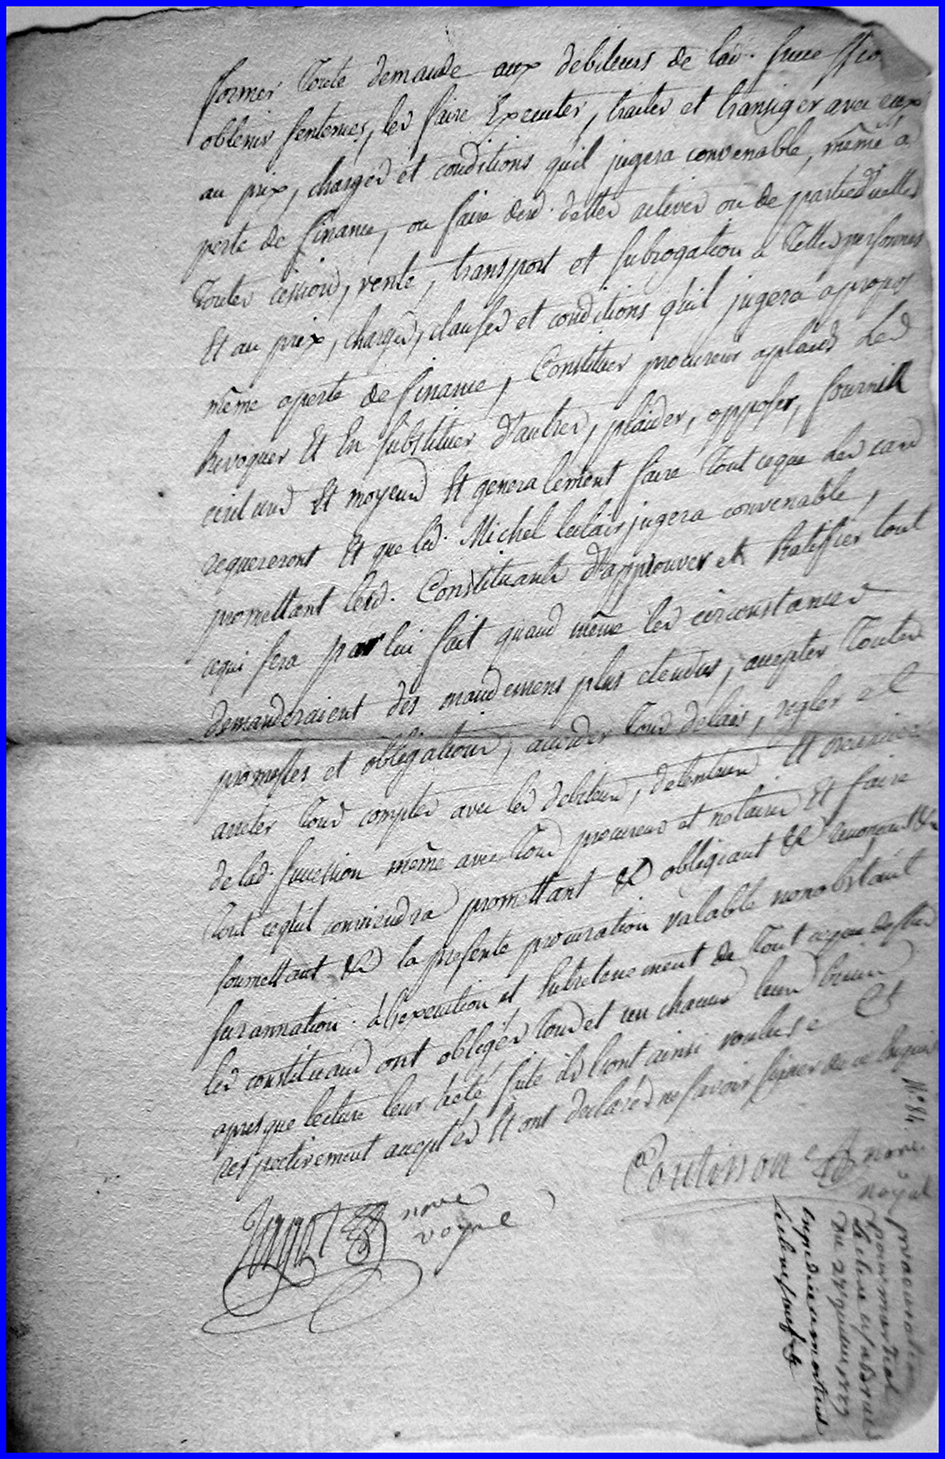 former toute demande aux debiteurs de lad. succession
obtenir sentences, les faire Executer, traiter et transiger avec eux
au prix, charges et conditions quil jugera convenable, même a
perte de finance, ou faire desd. dettes actives ou de partie d'icelles
toutes cessions, vente, transport et subrogation a telles personnes
Et au prix, charges, clauses et conditions qu'il jugera apropos
même aperte de finance, Constituer procureur aplaids Les
Revoquer Et En substituer d'autres, plaider, opposer, fournir
Et moyens Et generalement faire tout ceque les cas
requereront Et que led. Michel leclair jugera convenable,
promettant lesd. Constituants d'approuver et Ratifier tout
cequi sera par lui fait quand même les circonstances
demanderaient des mandemens plus etendus, accepter toutes
promesses et obligations, accorder tous delais, regler et
arreter tous comptes avec les debiteurs, detenteurs Et
de lad. succession même avec tous procureurs et notaires Et faire
tout cequil conviendra promettant &c obligeant &c renonçant &c
soumettant &c la presente procuration valable nonobstant
surannation. a l'execution et Entretenement de tout ceque dessus
les constituans ont obligés tous et un chacuns leurs biens
apres que lecture leur àeté faite ils l'ont ainsi voulus e Et
respectivement acceptés Et ont declarés ne savoir signer de ce Enquis
Coutisson &c nore
royal
nore
royal
N° 84
procuration
pour martial
leclere
du 24
Expediee a martial